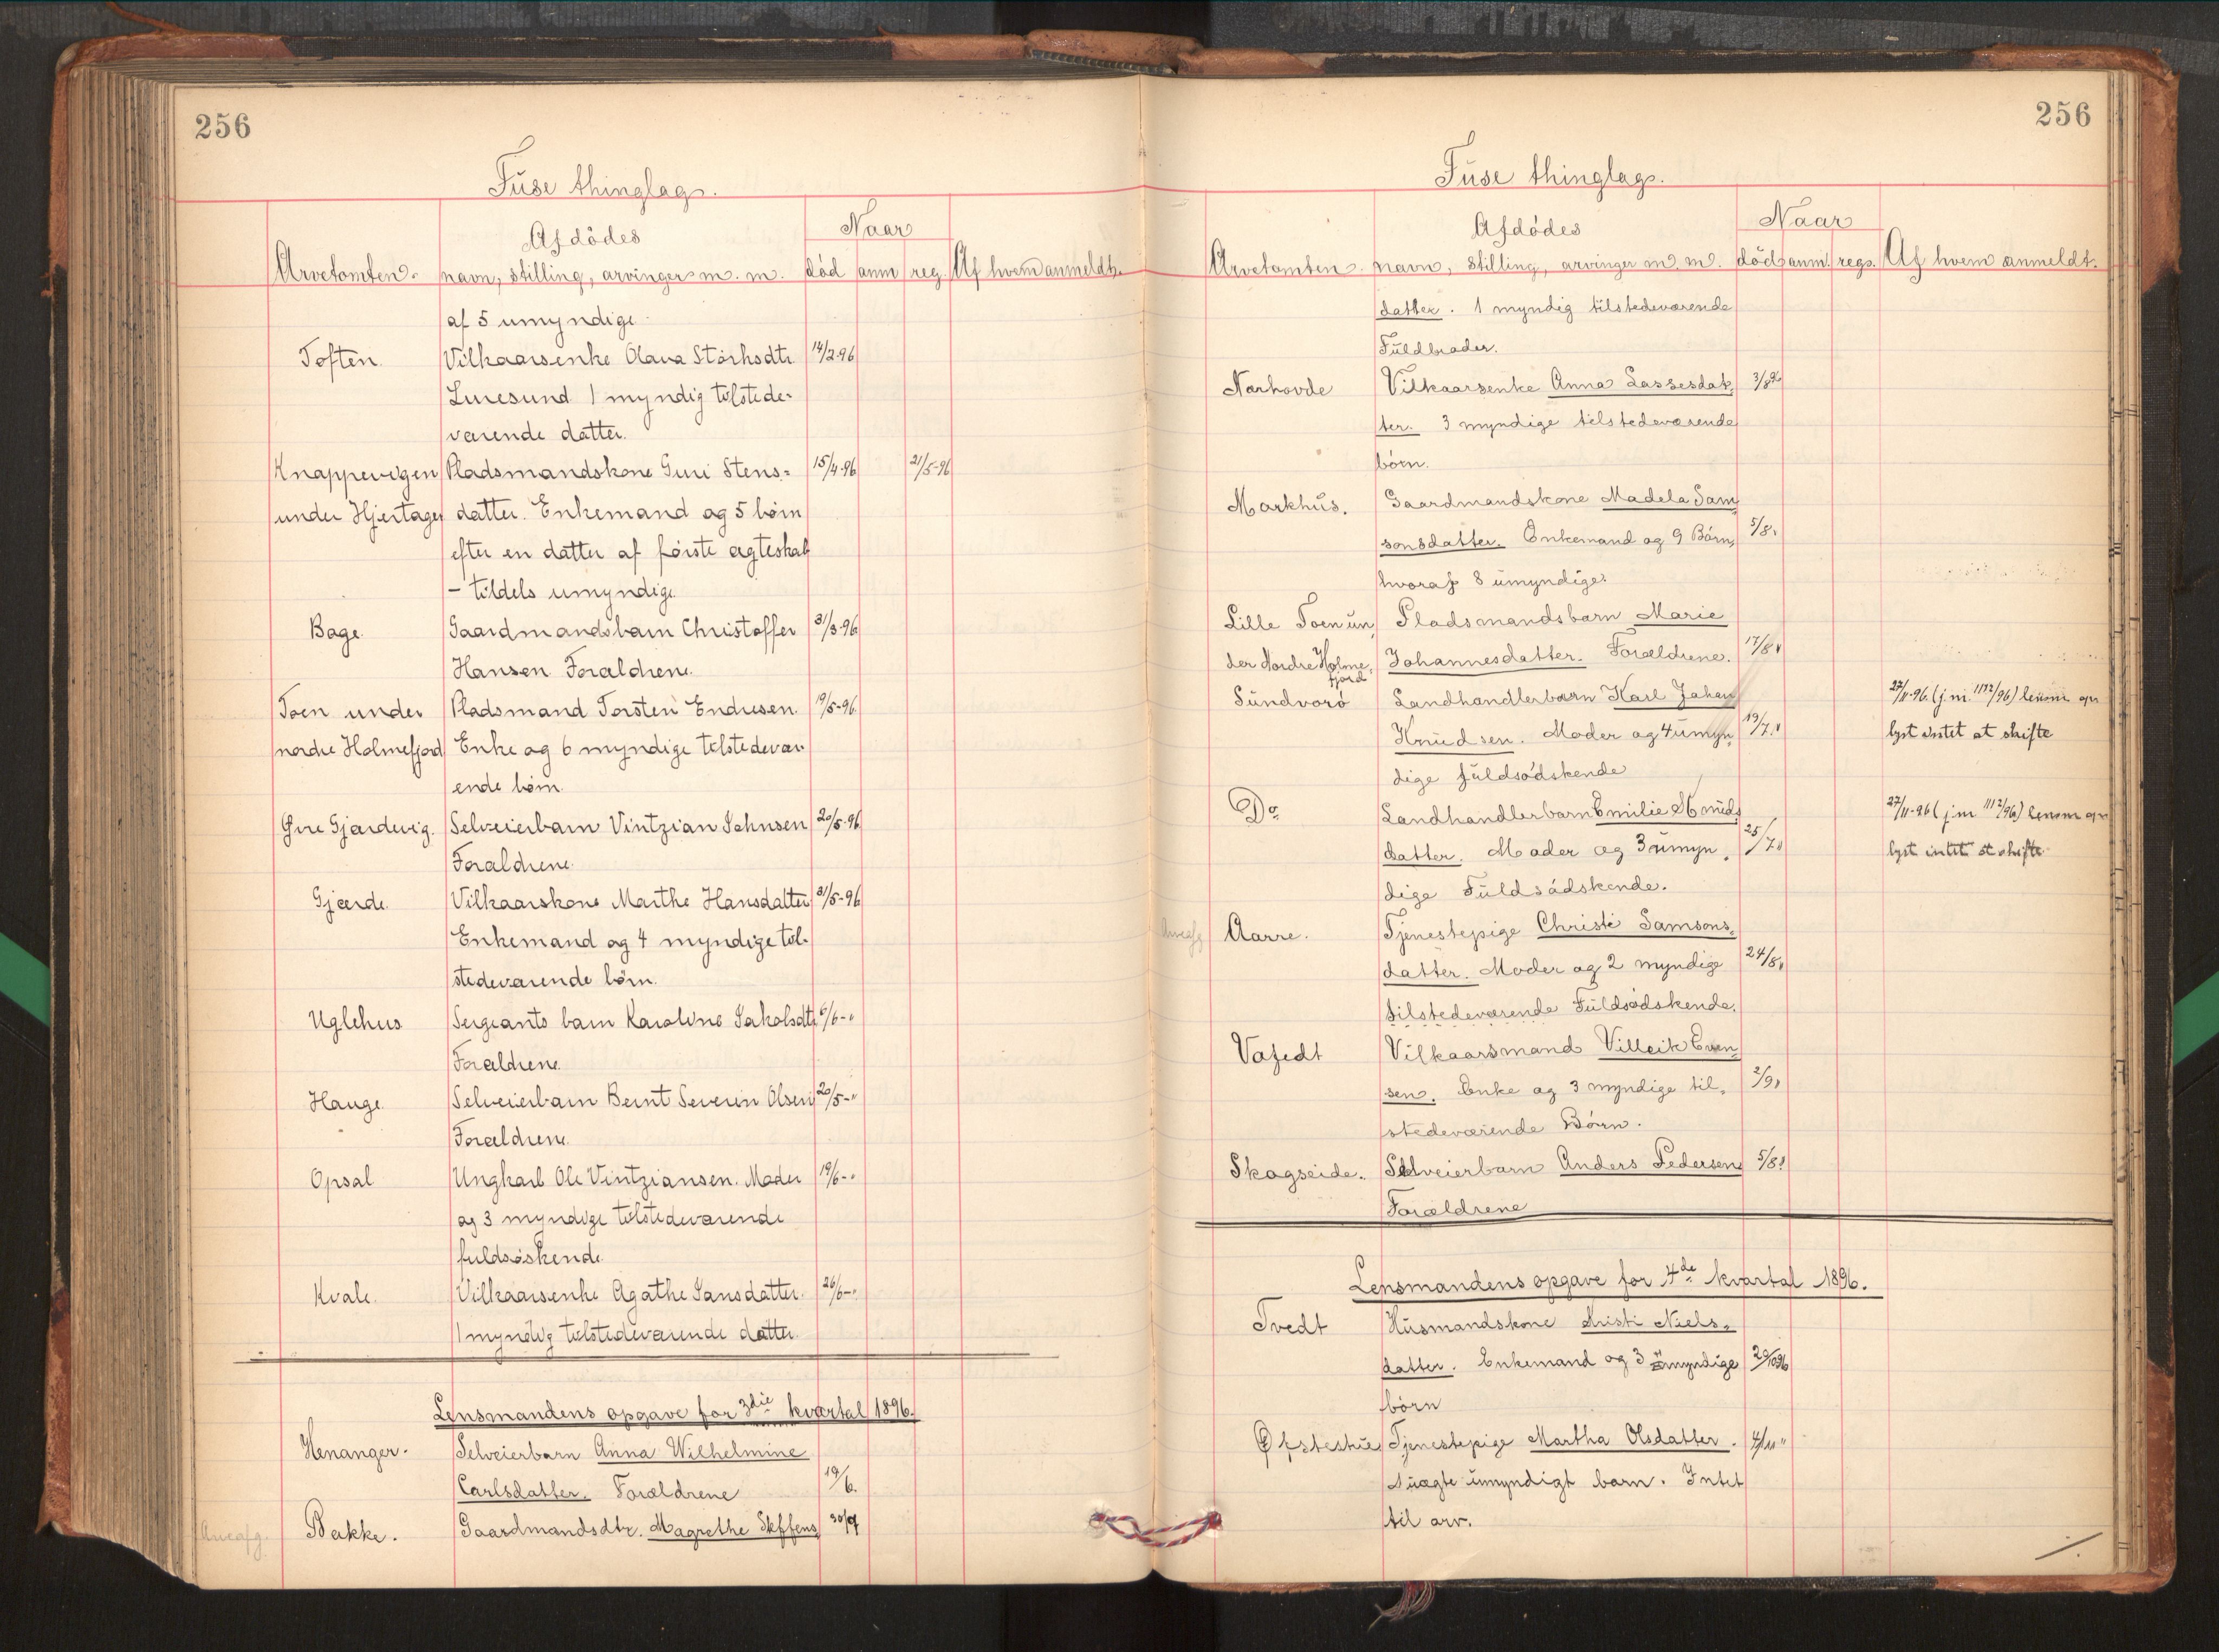 256
Fuse thinglags.
Naar
Afdødes
Arvetomten. navn, stilling, arvinger m. m. død anm reg. Af hvem anmeldt.
af 5 umyndige
Toften. Vilkaarsenke Olava Størksdtr. 14/2-96
Luresund 1 myndig tilstede-
værende datter.
Knappevigen Pladsmandskone Guri Stens- 15/4-96 21/5-96
under Hjertager datter. Enkemand og 5 børn
efter en datter af første ægteskab
- tildels umyndige.
Bage. Gaardmandsbarn Christoffer 31/3-96
Hansen Forældrene.
Toen under Pladsmand Torsten Endresen. 19/5-96.
nordre Holmefjord Enke og 6 myndige tilstedevær-
ende børn.
Øvre Gjerdevig. Selveierbarn Vintzian Johnsen 20/5-96.
Forældrene.
Gjærde. Vilkaarskone Marthe Hansdatter 31/5-96
Enkemand og 4 myndige til-
stedeværende børn.
Uglehus Sergeants barn Karoline Jakobsdtr. 6/6-"
Forældrene.
Hauge. Selveierbarn Bernt Severin Olsen 20/5-"
Forældrene.
Opsal Ungkarl Ole Vintziansen. Moder 19/6-"
og 3 myndige tilstedeværende
fuldsøskende.
Kvale. Vilkaarsenke Agathe Jansdatter. 26/6-"
1 myndig tilstedeværende datter.
Lensmandens opgave for 3die kvartal 1896.
Henanger. Selveierbarn Anna Wilhelmine
Carlsdatter. Forældrene 19/6.
Bakke. Gaardmandsdtr. Magrethe Steffens
256
Fuse thinglags.
Naar
Afdødes
Arvetomten. navn, stilling, arvinger m. m. død anm. regs. Af hvem anmeldt.
datter. 1 myndig tilstedeværende
Fuldbroder.
Nærhovde Vilkaarsenke Anna Lassesdat- 3/8 96
ter. 3 myndige tilstedeværende
børn.
Markhus. Gaardmandskone Madela Sam
sonsdatter. Enkemand og 9 Børn, 5/8"
hvoraf 8 umyndige.
Lille Toen un Pladsmandsbarn Marie
der Nordre Holme- Johannesdatter. Forældrene. 17/8"
fjord
Sundvorø Landhandlerbarn Karl Johan 27/11-96. (j. nr. 1112/96) lensm. op
Knudsen. Moder og 4 umyn 19/7" lyst intet at skifte
dige fuldsødskende
Do Landhandlerbarn Emilie Knuds 27/11-96 (j nr 1112/96) lensm. op
datter. Moder og 3 umyn- 25/7" lyst intet at skifte
dige Fuldsødskende.
Aarre. Tjenestepige Christi Samsons-
datter. Moder og 2 myndige 24/8"
tilstedeværende Fuldsødskende.
Vafedt Vilkaarsmand Villeik Even
sen. Enke og 3 myndige til- 2/9"
stedeværende Børn.
Skogseide. Selveierbarn Anders Pedersen 5/8"
Forældrene
Lensmandens opgave for 4de kvartal 1896.
Tvedt Husmandskone Kristi Niels-
datter. Enkemand og 3 umyndige 29/10 96
børn
Øfstestue Tjenestepige Martha Olsdatter. 4/11"
1 uægte umyndigt barn. Intet
til arv.